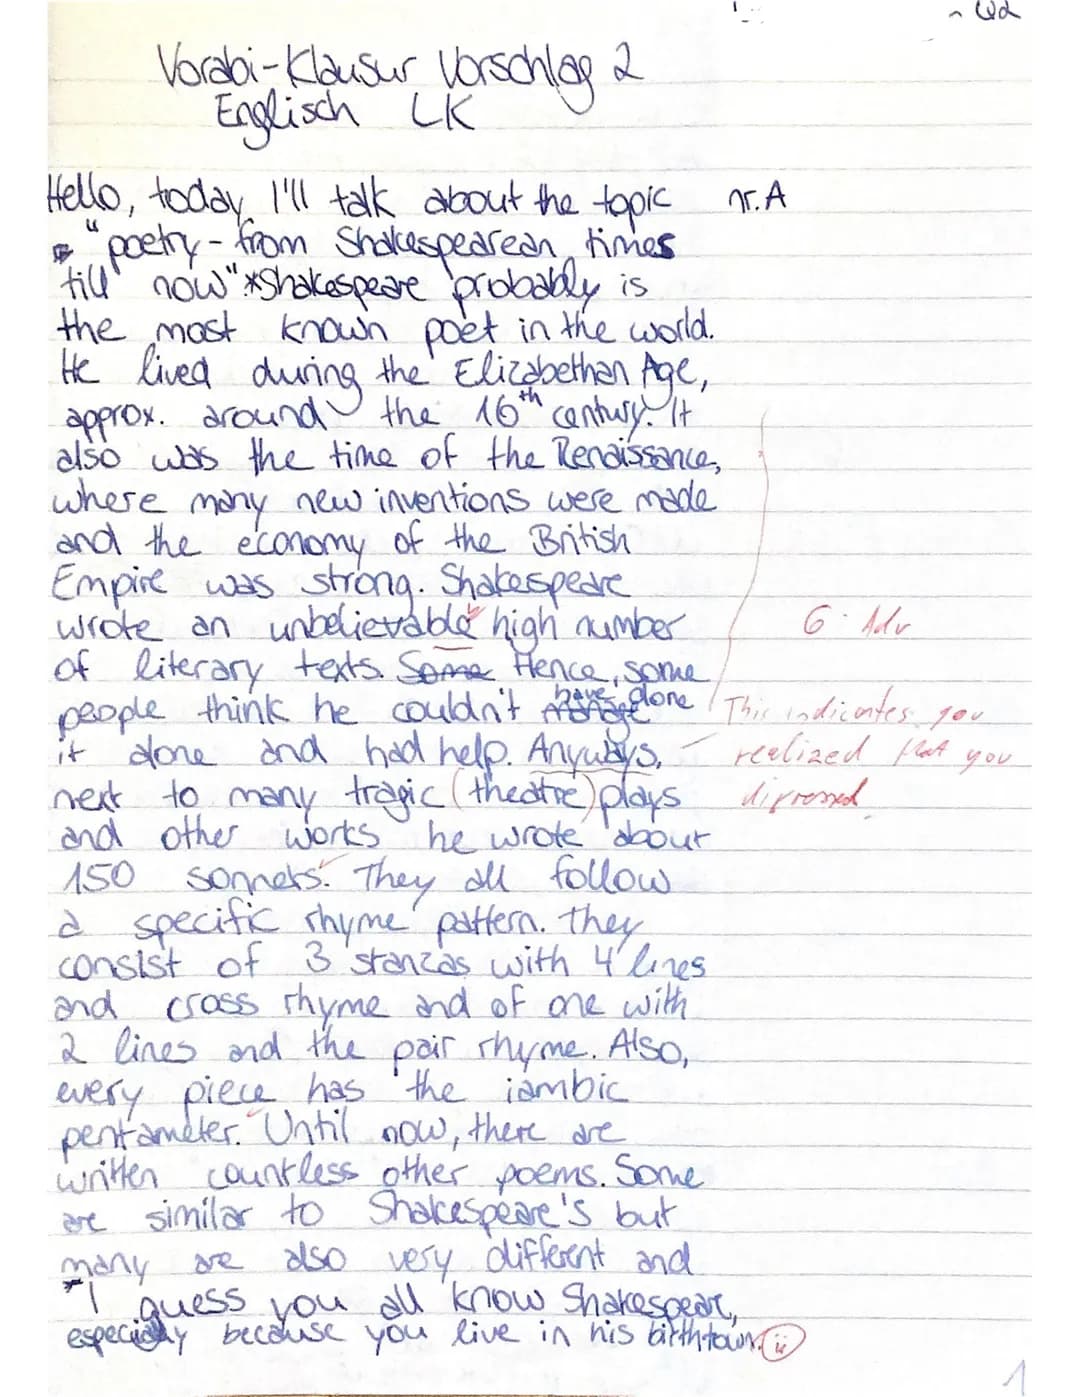 Vorabi-Klausur Vorschlag 2
Englisch LK
Hello, today I'll talk about the topic nr. A
"poetry - from Shakespearean times
till now".*Shakespeare probably is
the most known poet in the world.
He lived during the Elizabethan Age,
approx. around the 16th century. It
also was the time of the Renaissance,
where many new inventions were made
and the economy of the British
Empire was strong. Shakespeare
wrote an unbelievable high number
G Adv
of literary texts. Some Hence, some
people think he couldn't have done
it alone and had help. Anyways,
This indicates you
realized that you
digressed
next to many tragic (theatre) plays
and other works he wrote about
150 sonnets. They all follow
a specific rhyme pattern. They
consist of 3 stanzas with 4 lines
and cross rhyme and of one with
2 lines and the pair rhyme. Also,
every piece has the iambic
pentameter. Until now, there are
written countless other poems. Some
are similar to Shakespeare's but
many are also very different and
*I guess you all know Shakespear,
especially because you live in his birthtown.
1